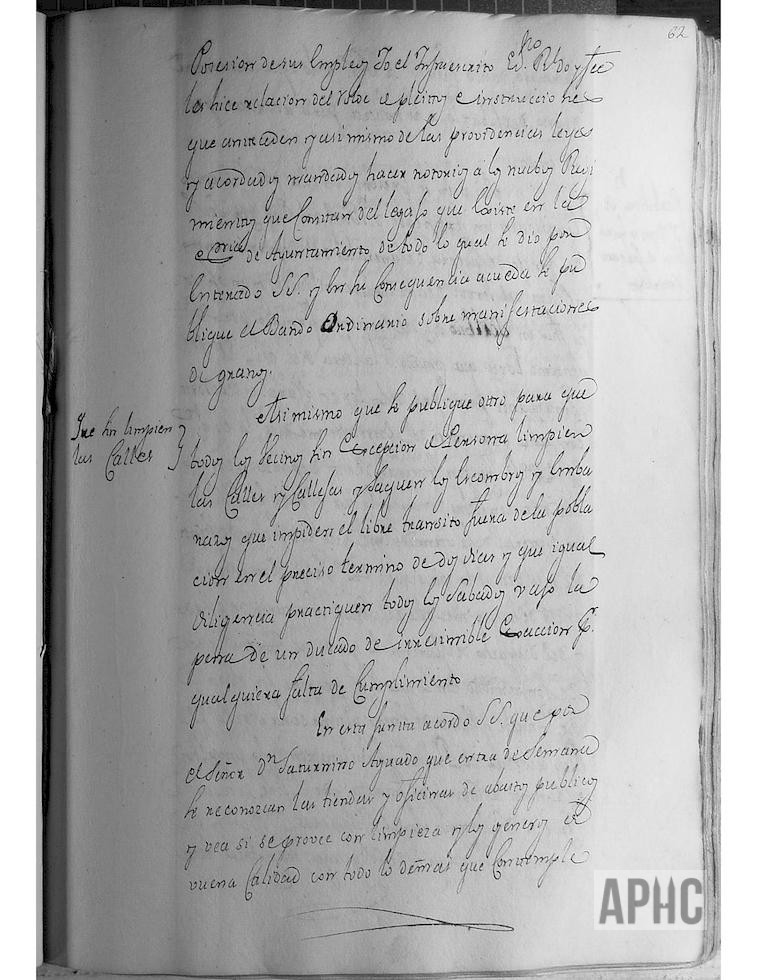 62
Posesion de sus Empleos Yo el Infraescrito Ess.no R.l doy fee
les hice relacion del Vale de pleitos e instrucciones
que anteceden y asi mismo de las providencias leyes
y acordados mandados hacer notorios a los nuebos Regi
mientos que Constan del legajo que Existe en la
de Ayuntamiento de todo lo qual se dio por
Enterado SS. y en su Consequencia acuerda se pu
blique el Bando Ordinario sobre manifestaciones
de granos.
Que se limpien
las Calles
Asi mismo que se publique otro para que
todos los Vecinos sin Excepcion de Persona limpien
las Calles y Callejas y saquen los Escombros y Emba
razos que impiden el libre transito fuera de la pobla
cion en el preciso termino de dos dias y que igual
diligencia practiquen todos los Sabados vajo la
pena de un ducado de irresimible Exaccion p.r
qualquiera falta de Cumplimiento
En esta Junta acordo SS. que por
el Señor Dn Saturnino Aguado que entra de Semana
se reconozcan las tiendas y oficinas de abasto publico
y vea si se provee con limpieza y los generos de
vuena Calidad con todo lo demas que Contemple
APHC